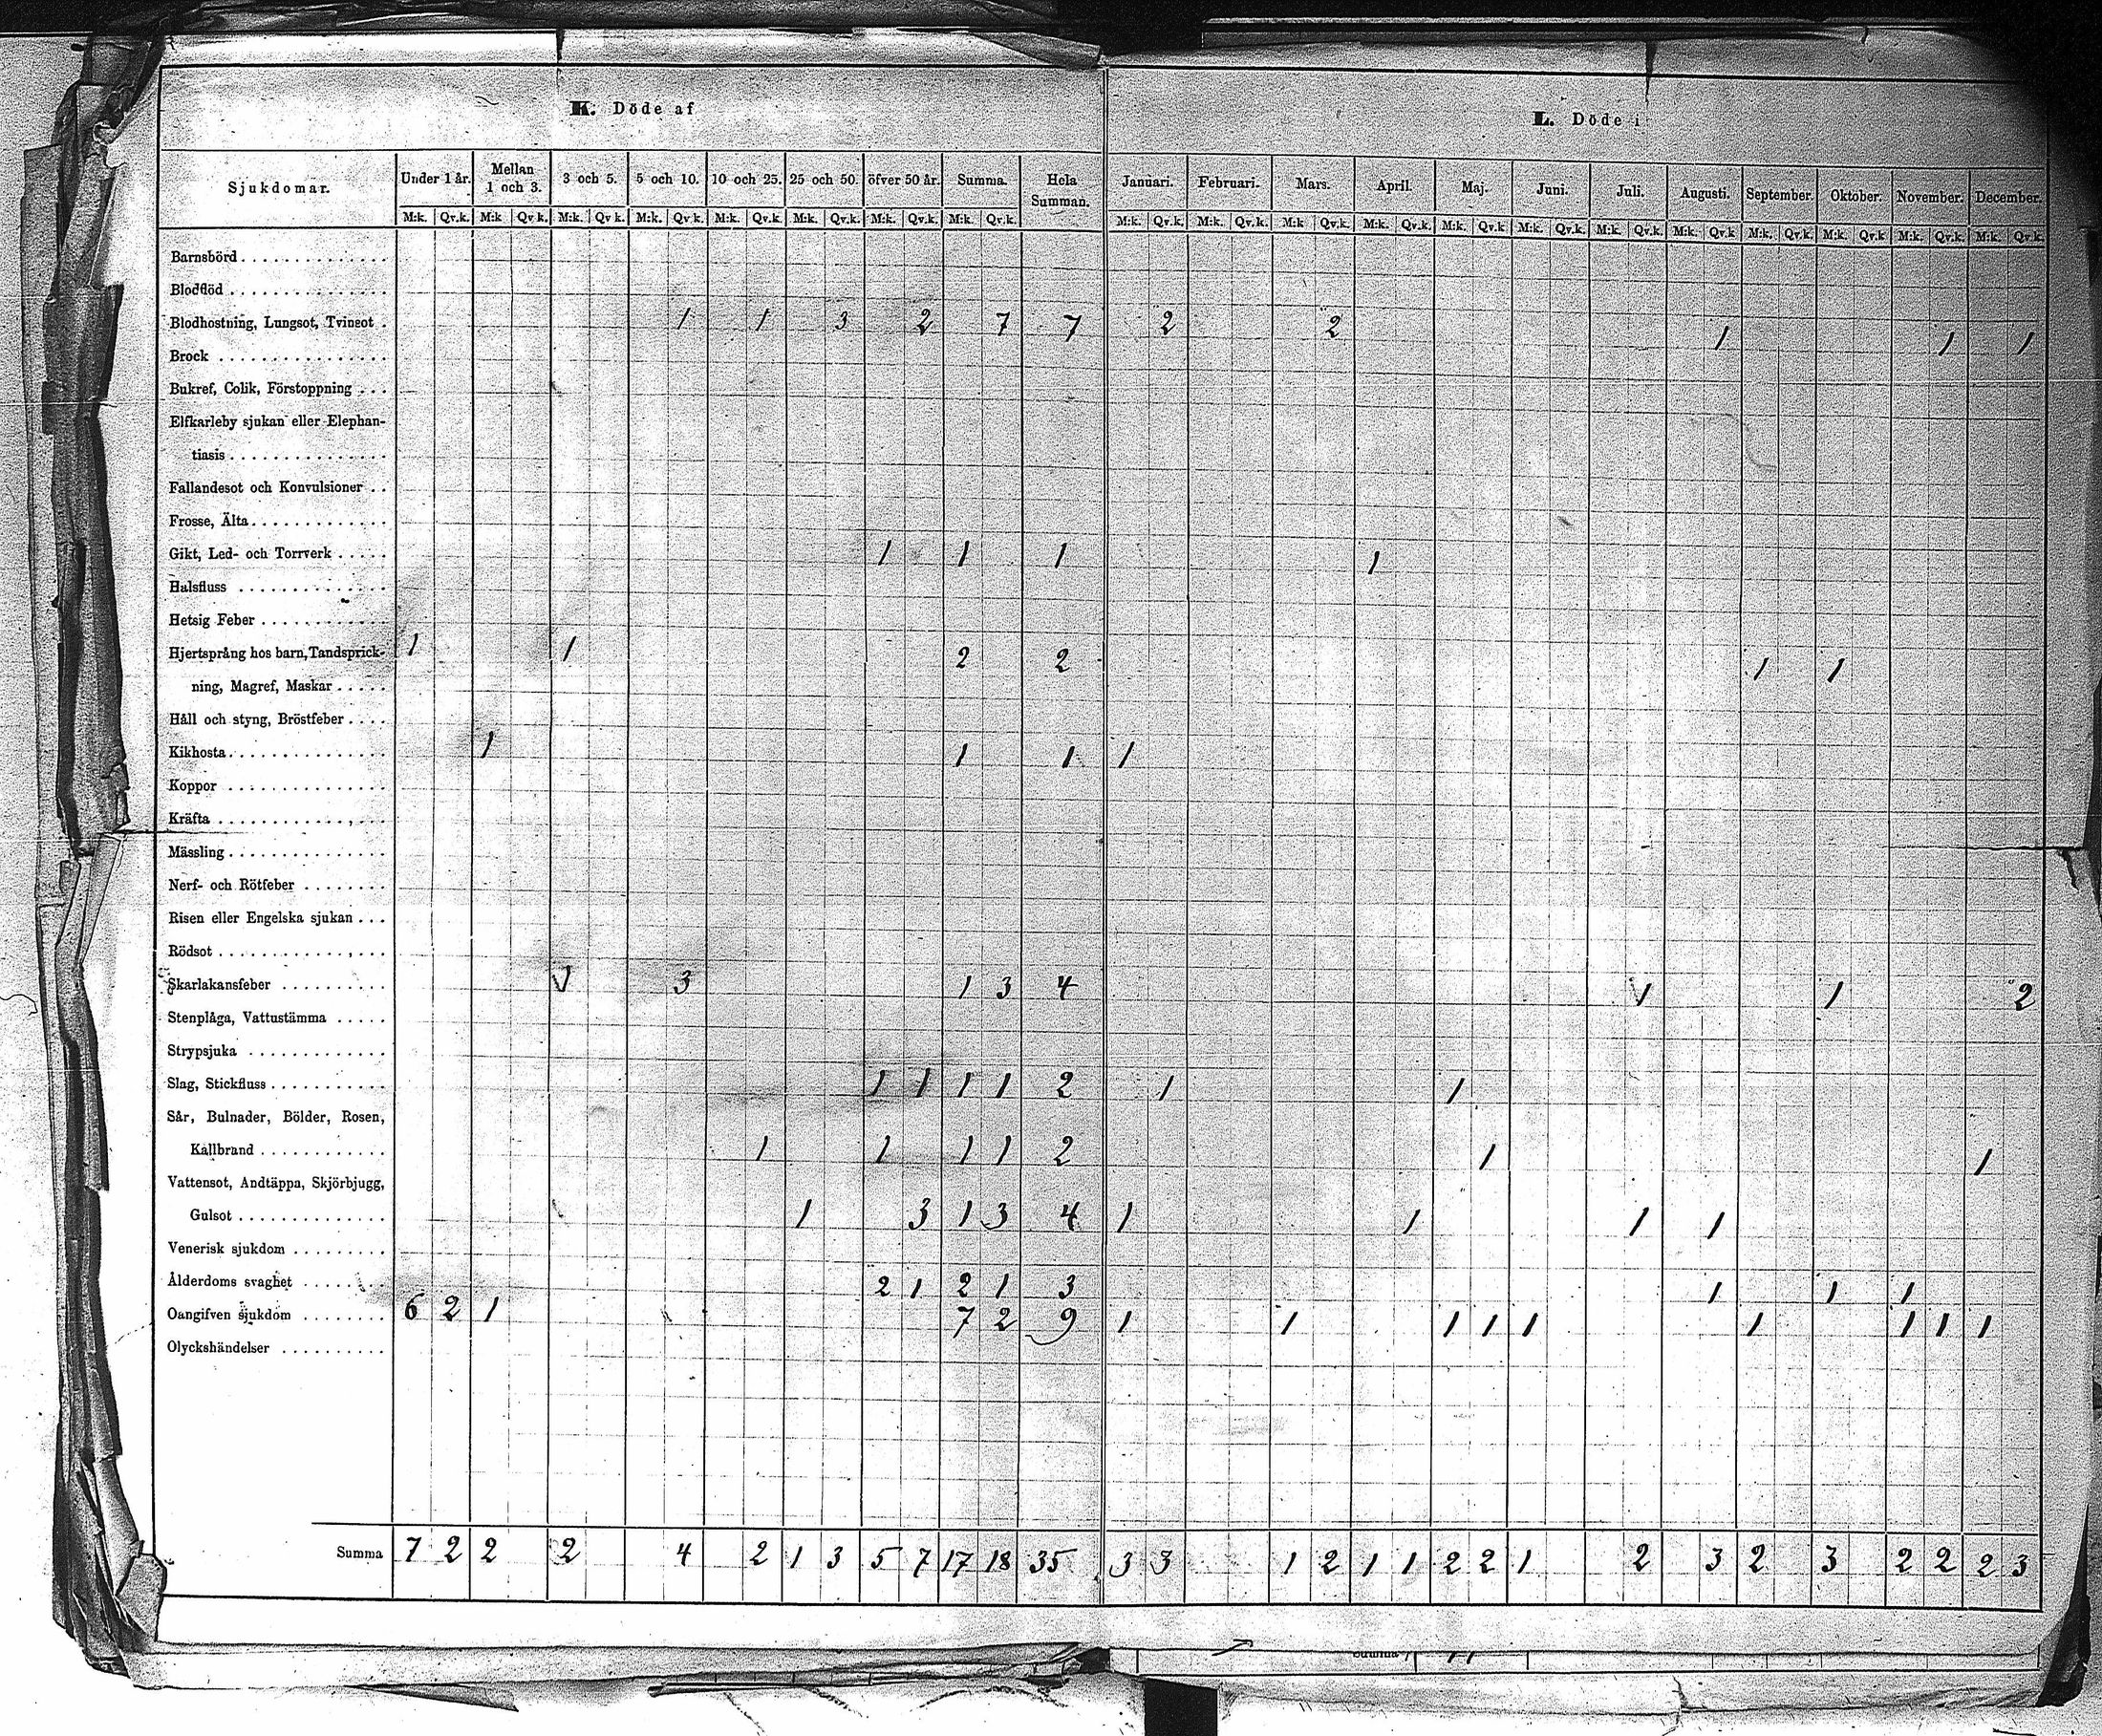 K. Döde af
L. Döde i
Sjukdomar. Under 1 år. Mellan 1 och 3. 3 och 5. 5 och 10. 10 och 25. 25 och 50. öfver 50 år. Summa. Hela Summan. Januari. Februari. Mars. April. Maj. Juni. Juli. Augusti. September. Oktober. November. December.
M:k. Qv.k. M:k Qv k. M:k. Qv k. M:k. Qv k. M:k. Qv.k. M:k. Qv.k. M:k. Qv.k. M:k. Qv.k. M:k. Qv.k. M:k. Qv.k. M:k Qv.k. M:k. Qv.k. M:k. Qv.k M:k. Qv.k. M:k. Qv.k. M:k. Qv.k M:k. Qv.k. M:k. Qv.k M:k. Qv.k. M:k. Qv.k.
Barnsbörd
Blodflöd
Blodhostning, Lungsot, Tvinsot 1 1 3 2 7 7 2 2 1 1 1
Brock
Bukref, Colik, Förstoppning
Elfkarleby sjukan eller Elephan-
tiasis
Fallandesot och Konvulsioner
Frosse, Älta
Gikt, Led- och Torrverk 1 1 1 1
Halsfluss
Hetsig Feber
Hjertsprång hos barn, Tandsprick- 1 1 2 2 1 1
ning, Magref, Maskar
Håll och styng, Bröstfeber
Kikhosta 1 1 1 1
Koppor
Kräfta
Mässling
Nerf- och Rötfeber
Risen eller Engelska sjukan
Rödsot
Skarlakansfeber 1 3 1 3 4 1 1 2
Stenplåga, Vattustämma
Strypsjuka
Slag, Stickfluss 1 1 1 1 2 1 1
Sår, Bulnader, Bölder, Rosen,
Kallbrand 1 1 1 1 2 1 1
Vattensot, Andtäppa, Skjörbjugg,
Gulsot 1 3 1 3 4 1 1 1 1
Venerisk sjukdom
Ålderdoms svaghet 2 1 2 1 3 1 1 1
Oangifven sjukdom 6 2 1 7 2 9 1 1 1 1 1 1 1 1 1
Olyckshändelser
Summa 7 2 2 2 4 2 1 3 5 7 17 18 35 3 3 1 2 1 1 2 2 1 2 3 2 3 2 2 2 3